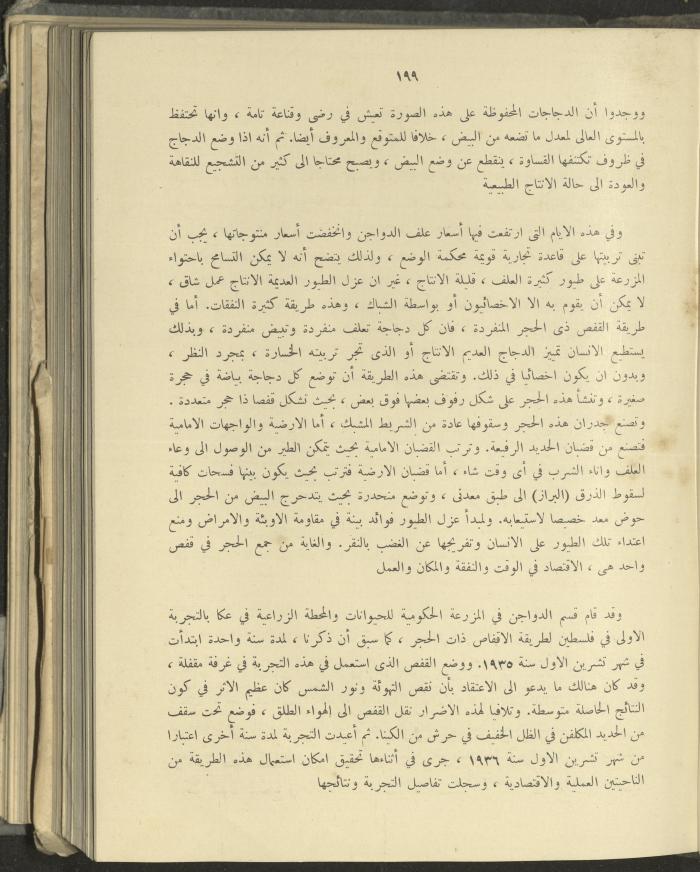 ١٩٩
ووجدوا أن الدجاجات المحفوظة على هذه الصورة تعيش في رضى وقناعة تامة ، وانها تحتفظ
بالمستوى العالى لمعدل ما تضعه من البيض ، خلافا للمتوقع والمعروف أيضا. ثم أنه اذا وضع الدجاج
في ظروف تكتنفها القساوة ، ينقطع عن وضع البيض ، ويصبح محتاجا الى كثير من التشجيع للنقاهة
والعودة الى حالة الانتاج الطبيعية
وفي هذه الايام التى ارتفعت فيها أسعار علف الدواجن وانخفضت أسعار منتوجاتها ، يجب أن
تبنى تربيتها على قاعدة تجارية قويمة محكمة الوضع ، ولذلك يتضح أنه لا يمكن التسامح باحتواء
المزرعة على طيور كثيرة العلف ، قليلة الانتاج ، غير ان عزل الطيور العديمة الانتاج عمل شاق ،
لا يمكن أن يقوم به الا الاخصائيون أو بواسطة الشباك ، وهذه طريقة كثيرة النفقات. أما في
طريقة القفص ذى الحجر المنفردة ، فان كل دجاجة تعلف منفردة وتبيض منفردة ، وبذلك
يستطيع الانسان تمييز الدجاج العديم الانتاج أو الذى تجر تربيته الخسارة ، بمجرد النظر ،
وبدون ان يكون اخصائيا في ذلك. وتقتضى هذه الطريقة أن توضع كل دجاجة بياضة في حجرة
صغيرة ، وتنشأ هذه الحجر على شكل رفوف بعضها فوق بعض ، بحيث تشكل قفصا ذا حجر متعددة .
وتصنع جدران هذه الحجر وسقوفها عادة من الشريط المشبك ، أما الارضية والواجهات الامامية
فتصنع من قضبان الحديد الرفيعة. وترتب القضبان الامامية بحيث يتمكن الطير من الوصول الى وعاء
العلف واناء الشرب في أى وقت شاء ، أما قضبان الارضية فترتب بحيث يكون بينها فسحات كافية
لسقوط الذرق (البراز) الى طبق معدنى ، وتوضع منحدرة بحيث يتدحرج البيض من الحجر الى
حوض معد خصيصا لاستيعابه. ولمبدأ عزل الطيور فوائد بينة في مقاومة الاوبئة والامراض ومنع
اعتداء تلك الطيور على الانسان وتفريجها عن الغضب بالنقر. والغاية من جمع الحجر في قفص
واحد هى ، الاقتصاد في الوقت والنفقة والمكان والعمل
وقد قام قسم الدواجن في المزرعة الحكومية للحيوانات والمحطة الزراعية في عكا بالتجربة
الاولى في فلسطين لطريقة الاقفاص ذات الحجر ، كما سبق أن ذكرنا ، لمدة سنة واحدة ابتدأت
في شهر تشرين الاول سنة ١٩٣٥. ووضع القفص الذى استعمل في هذه التجربة في غرفة مقفلة ،
وقد كان هنالك ما يدعو الى الاعتقاد بأن نقص التهوئة ونور الشمس كان عظيم الاثر في كون
النتائج الحاصلة متوسطة. وتلافيا لهذه الاضرار نقل القفص الى الهواء الطلق ، فوضع تحت سقف
من الحديد المكلفن في الظل الخفيف في حرش من الكينا. ثم أعيدت التجربة لمدة سنة أخرى اعتبارا
من شهر تشرين الاول سنة ١٩٣٦ ، جرى في أثناءها تحقيق امكان استعمال هذه الطريقة من
الناحيتين العملية والاقتصادية ، وسجلت تفاصيل التجربة ونتائجها